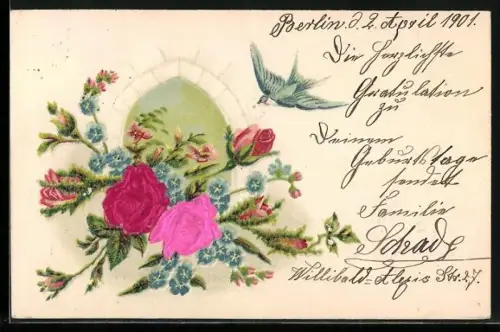 Berlin d. 2. April 1901.
Die herzlichste
Gratulation
zu
Deinem
Geburtstage
sendet
Familie
Schade
Willibald=Alexis Str. 27.